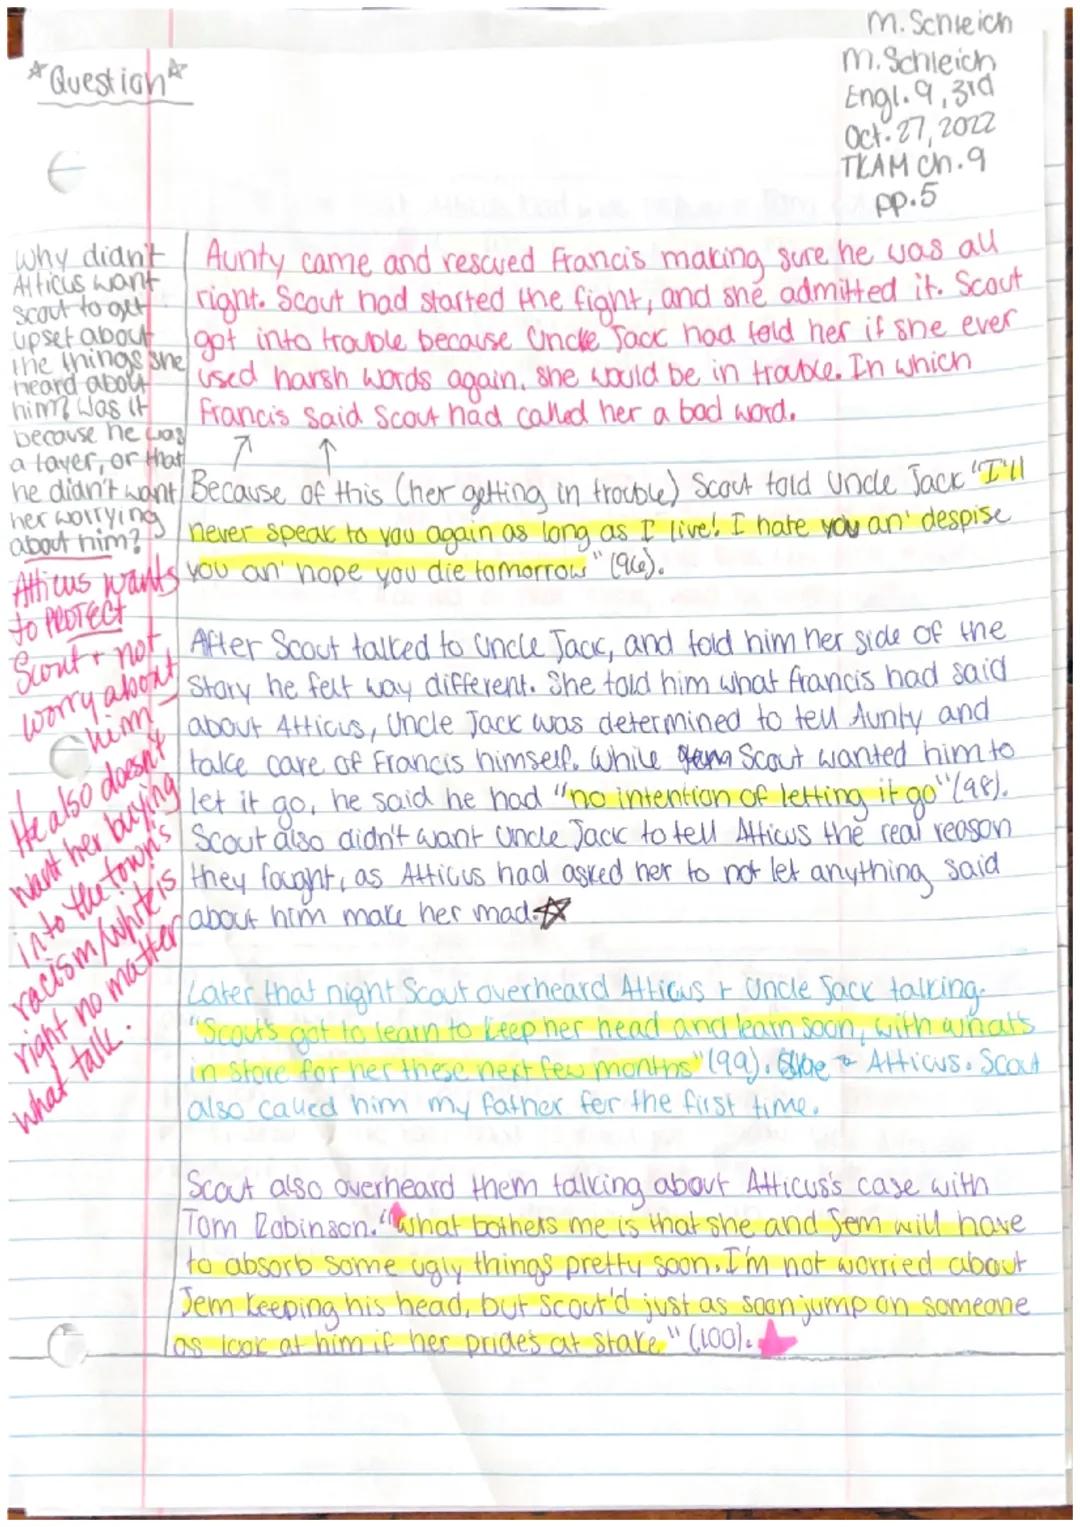 M. Schleich
M. Schleich
Engl. 9, 3rd
Oct. 27, 2022
TKAM Ch. 9
pp. 5
☆Question☆
Why didn't
Atticus want
Scout to get
upset about
the things she
heard about
him? Was it
because he was
a layer, or that
he didn't want
her worrying
about him?
Atticus wants
to PROTECT
Scout + not
worry about
him -
He also doesn't
want her buying
into the town's
racism/white is
right no matter
what talk.
Aunty came and rescued Francis making sure he was all
right. Scout had started the fight, and she admitted it. Scout
got into trouble because Uncle Jack had told her if she ever
used harsh words again, she would be in trouble. In which
Francis said Scout had called her a bad word.
↑ ↑
Because of this (her getting in trouble) Scout told Uncle Jack "I'll
never speak to you again as long as I live! I hate you an' despise
you an' hope you die tomorrow" (96).
After Scout talked to Uncle Jack, and told him her side of the
story he felt way different. She told him what Francis had said
about Atticus, Uncle Jack was determined to tell Aunty and
take care of Francis himself. While Scout wanted him to
let it go, he said he had "no intention of letting it go" (98).
Scout also didn't want Uncle Jack to tell Atticus the real reason
they fought, as Atticus had asked her to not let anything said
about him make her mad.☆
Later that night Scout overheard Atticus + Uncle Jack talking.
"Scout's got to learn to keep her head and learn soon, with what's
in store for her these next few months" (99). Atticus. Scout
also called him my father for the first time.
Scout also overheard them talking about Atticus's case with
Tom Robinson. "What bothers me is that she and Jem will have
to absorb some ugly things pretty soon. I'm not worried about
Jem keeping his head, but Scout'd just as soon jump on someone
as look at him if her pride's at stake" (100).